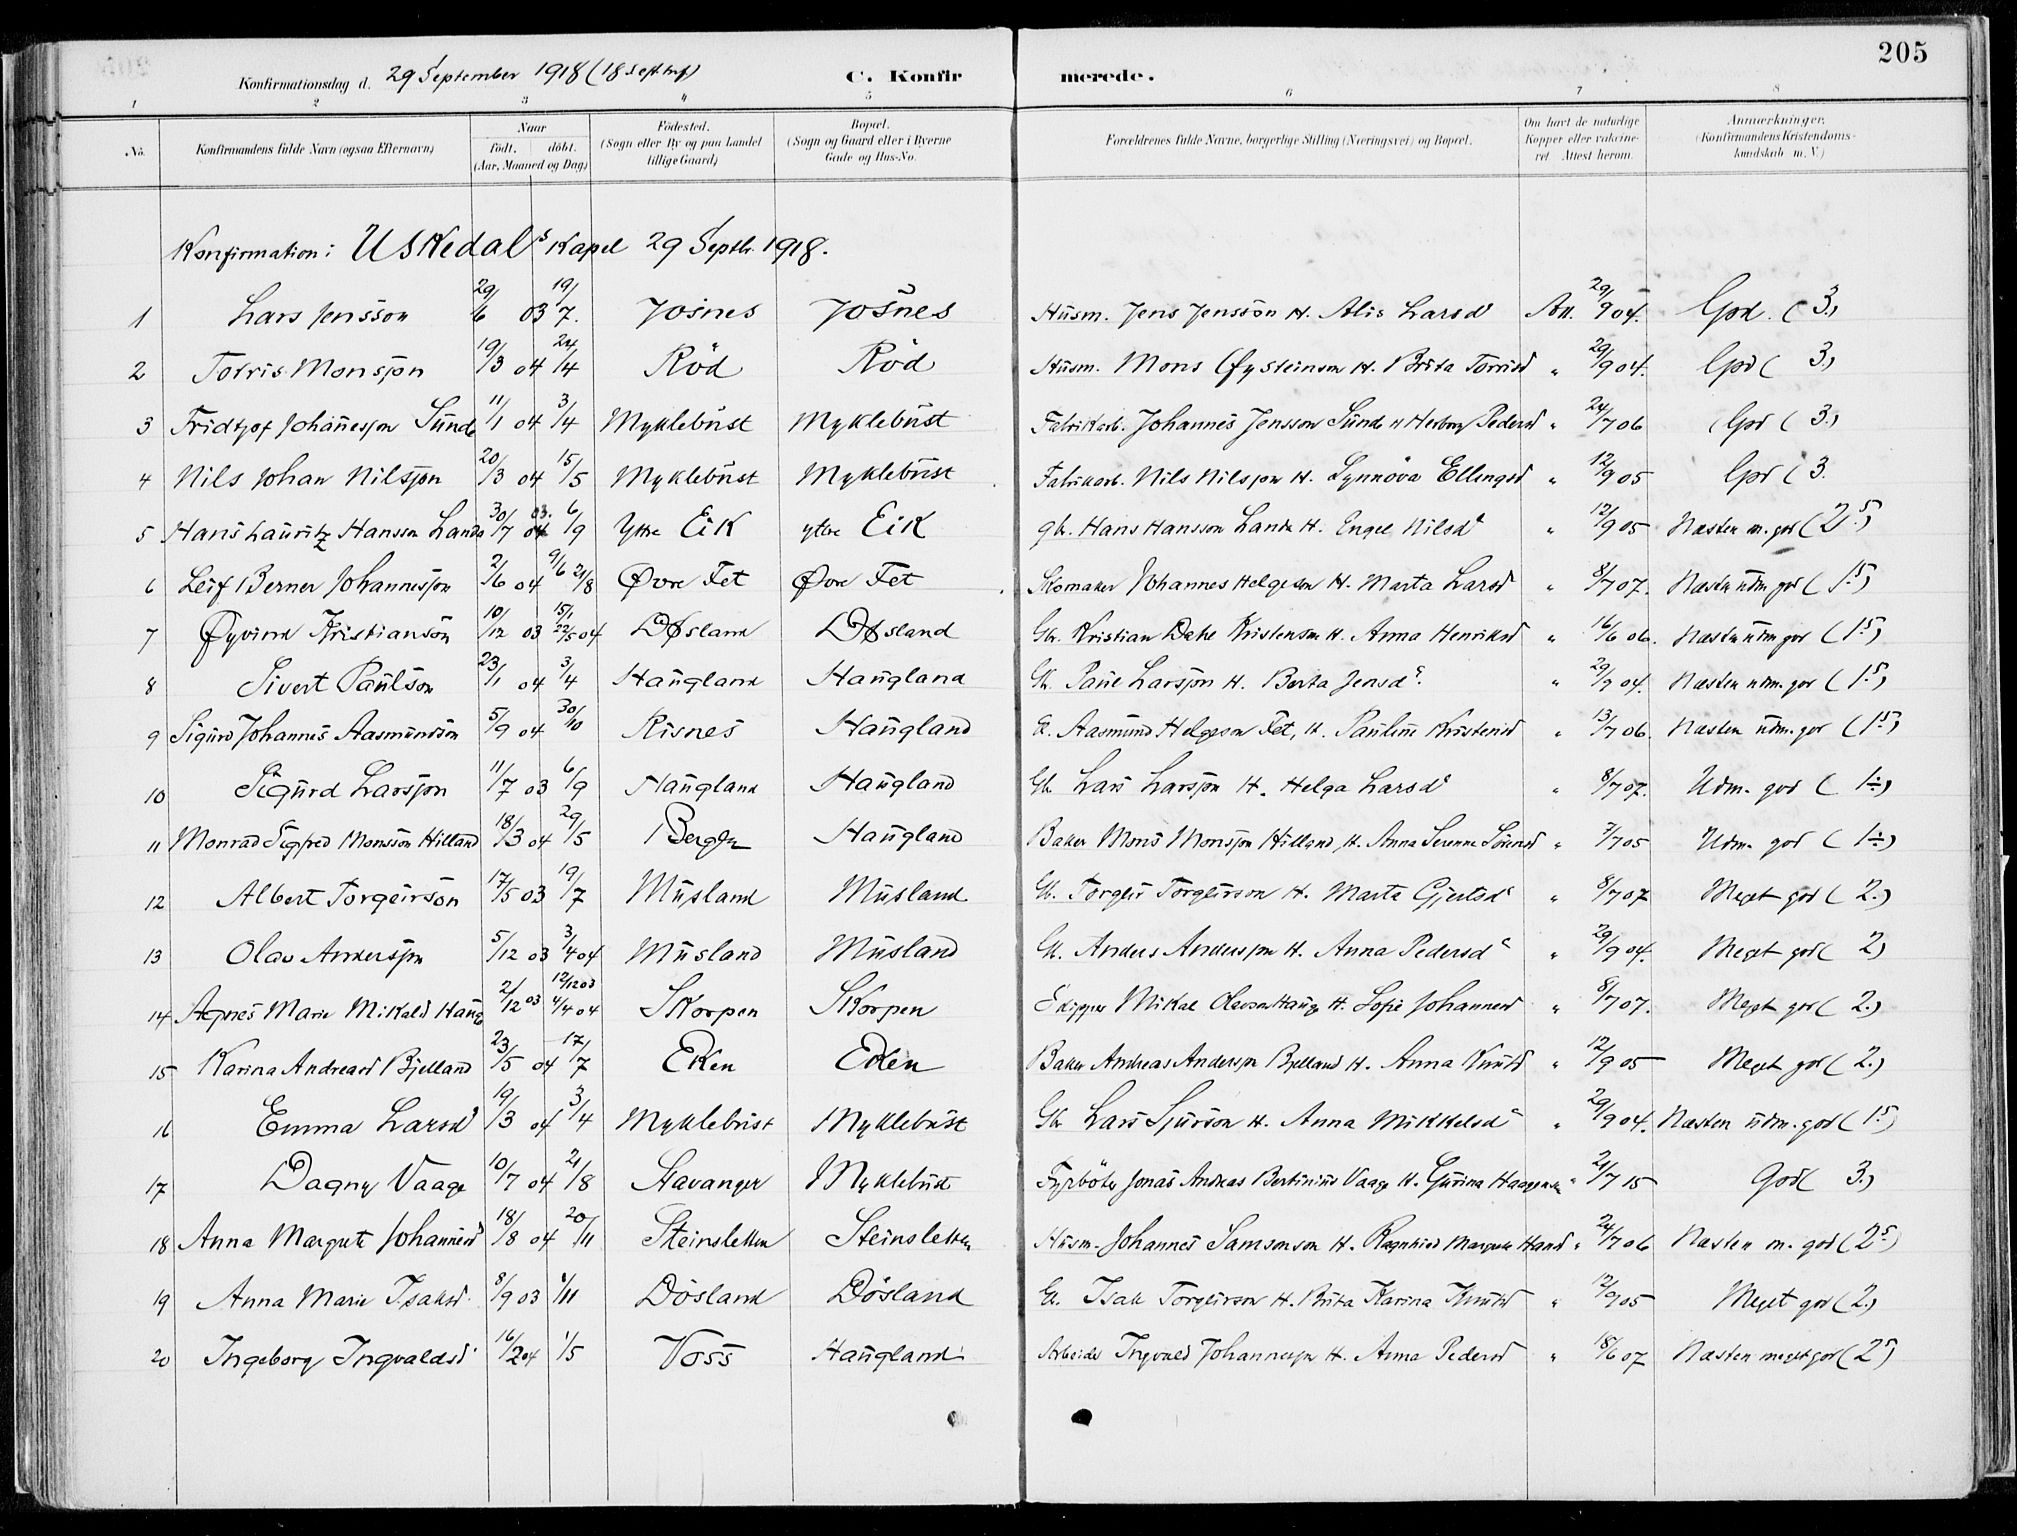 205
Konfirmationsdag d. 29 September 1918 (18 S. e. tref.) C. Konfirmerede.
1 2 3 4 5 6 7 8
No. Konfirmandens fulde Navn (ogsaa Efternavn) Naar födt. döbt. (Aar, Maaned og Dag) Födested. (Sogn eller By og paa Landet tillige Gaard) Bopæl. (Sogn og Gaard eller i Byerne Gade og Hus-No. Forældrenes fulde Navne, borgerlige Stilling (Næringsvei) og Bopæl. Om havt de naturlige Kopper eller vaccineret. Attest herom. Anmærkninger. (Konfirmandens Kristendomskundskab m. V.)
Konfirmation i Uskedals Kapel 29 Septbr. 1918.
1 Lars Jensson 29/6 03 19/7. Josnes Josnes Husm. Jens Jensson H. Alis Larsd Att. 29/9 04. God. (3.)
2 Torris Monsson 19/3 04 24/4 Röd Röd Husm. Mons Øysteinson H. Brita Torrisd " 29/9 04. God (3.)
3 Fridtjof Johannesson Sunde 11/1 04 3/4 Myklebust Myklebust Fabrikarb. Johannes Jensson Sunde H Herborg Pedersd " 24/7 06 God (3.)
4 Nils Johan Nilsson 20/3 04 15/5 Myklebust Myklebust Fabrikarb. Nils Nilsson H. Synnöva Ellingsd " 12/9 05 God (3.
5 Hans Lauritz Hansson Lande 30/7 03. 04 6/9 Ytre Eik ytre Eik gbr. Hans Hansson Lande H. Engel Nilsd " 12/9 05 Næsten m. god (2.5)
6 Leif Berner Johannesson 2/6 04 9/6 21/8 Øvre Fet Øvre Fet Skomaker Johannes Helgeson H. Marta Larsd " 8/7 07. Næsten udm god (1.5)
7 Øyvind Kristianson 10/12 03 15/1 22/5 04 Døsland Døsland Gbr. Kristian Dahl Kristenson H. Anna Henriksd " 16/6 06. Næsten udm god (1.5)
8 Sivert Paulson 23/1 04 3/4 Haugland Haugland Gb. Paul Larsson H. Berta Jensd. " 29/9 04. Næsten udm. god (1.5)
9 Sigurd Johannes Aasmundson 5/9 04 30/10 Risnes Haugland G. Aasmund Helgeson Fet, H. Pauline Kristensd " 13/7 06. Næsten udm. god (1.5)
10 Sigurd Larsson 11/7 03 6/9 Haugland Haugland Gb. Lars Larsson H. Helga Larsd " 8/7 07. Udm. god (1÷)
11 Monrad Sigfred Monsson Hilland 18/3 04 29/5 Bergen Haugland Baker Mons Monsson Hilland H. Anna Serenne Sörensd " 7/7 05 Udm. god (1÷)
12 Albert Torgeirson 17/5 03 19/7 Musland Musland Gb. Torgeir Torgeirson H. Marta Gjertsd " 8/7 07 Meget god (2.)
13 Olav Andersson 5/12 03 3/4 04 Musland Musland Gb. Anders Andersson H. Anna Pedersd " 29/9 04. Meget god (2)
14 Agnes Marie Mikalsd Haug 2/12 03 12/12 03 4/4 04 Skorpen Skorpen Skipper Mikal Olavson Haug H. Sofie Johannesd " 8/7 07. Meget god (2.)
15 Karina Andreasd Bjelland 23/5 04 17/7 Eken Eken Baker Andreas Andersson Bjelland H. Anna Knutsd " 12/9 05 Meget god (2.)
16 Emma Larsd 19/3 04 3/4 Myklebust Myklebust Gbr Lars Sjurson H. Anna Mikkelsd " 29/9 04. Næsten udm. god (1.5)
17 Dagny Vaage 10/7 04 21/8 Stavanger Myklebust Fyrböter Jonas Andreas Bertinius Vaage H. Gurina Haagensen " 21/7 15 God (3.)
18 Anna Margrete Johannesd 18/8 04 20/11 Steinsletten Steinsletten Husm. Johannes Samsonson H. Ragnhild Margrete Hansd " 24/7 06 Næsten m. god (2.5)
19 Anna Marie Isaksd. 8/9 03 1/11 Dösland Dösland G. Isak Torgeirson H. Brita Karina Knutsd " 12/9 05 Meget god (2.)
20 Ingeborg Ingvaldsd 16/2 04 1/5 Voss Haugland Arbeider Ingvald Johannesson H. Anna Pedersd " 18/6 07 Næsten meget god (2.5)